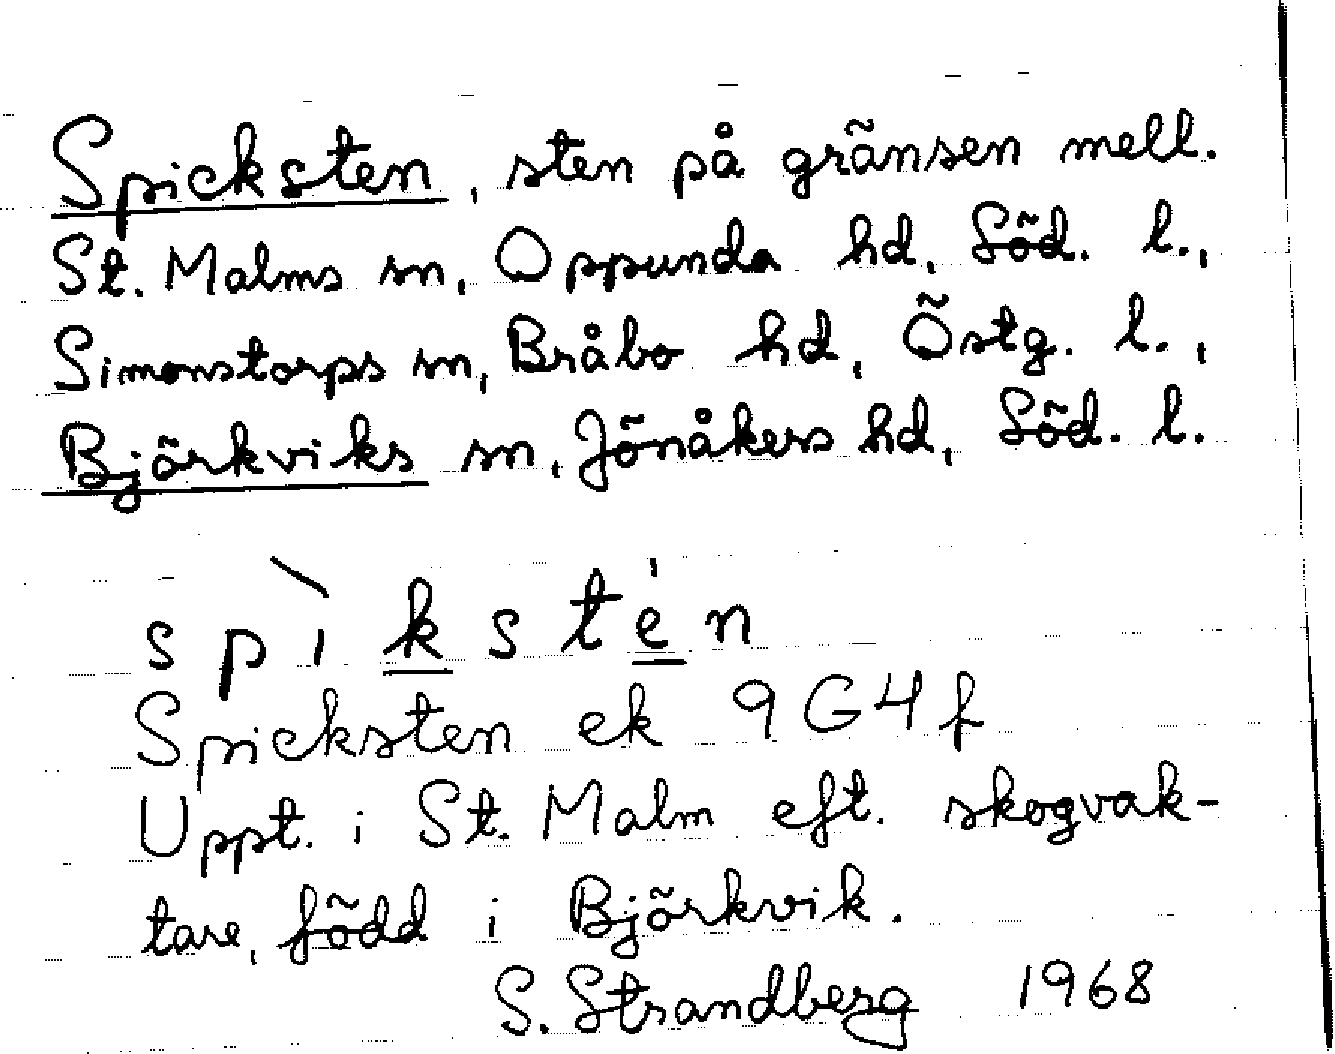 Spicksten, sten på gränsen mell.
St. Malms sn, Oppunda hd, Söd. l.,
Simonstorps sn, Bråbo hd, Östg. l.,
Björkviks sn, Jönåkers hd, Söd. l.
spìkstén
Spicksten ek 9G4f
Uppt. i St. Malm eft. skogvak-
tare, född i Björkvik.
S. Strandberg 1968